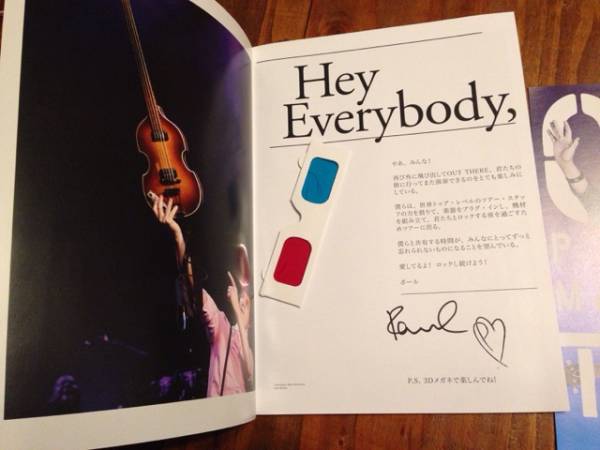 Hey
Everybody,
やあ、みんな!
再び外に飛び出してOUT THERE、君たちの
前に行ってまた演奏できるのをとても楽しみに
している。
僕らは、世界トップ・レベルのツアー・スタッ
フの力を借りて、楽器をプラグ・インし、機材
を組み立て、君たちとロックする夜を過ごすた
めツアーに出る。
僕らと共有する時間が、みんなにとってずっと
忘れられないものになることを望んでいる。
愛してるよ! ロックし続けよう!
ポール
Paul
P.S. 3Dメガネで楽しんでね!